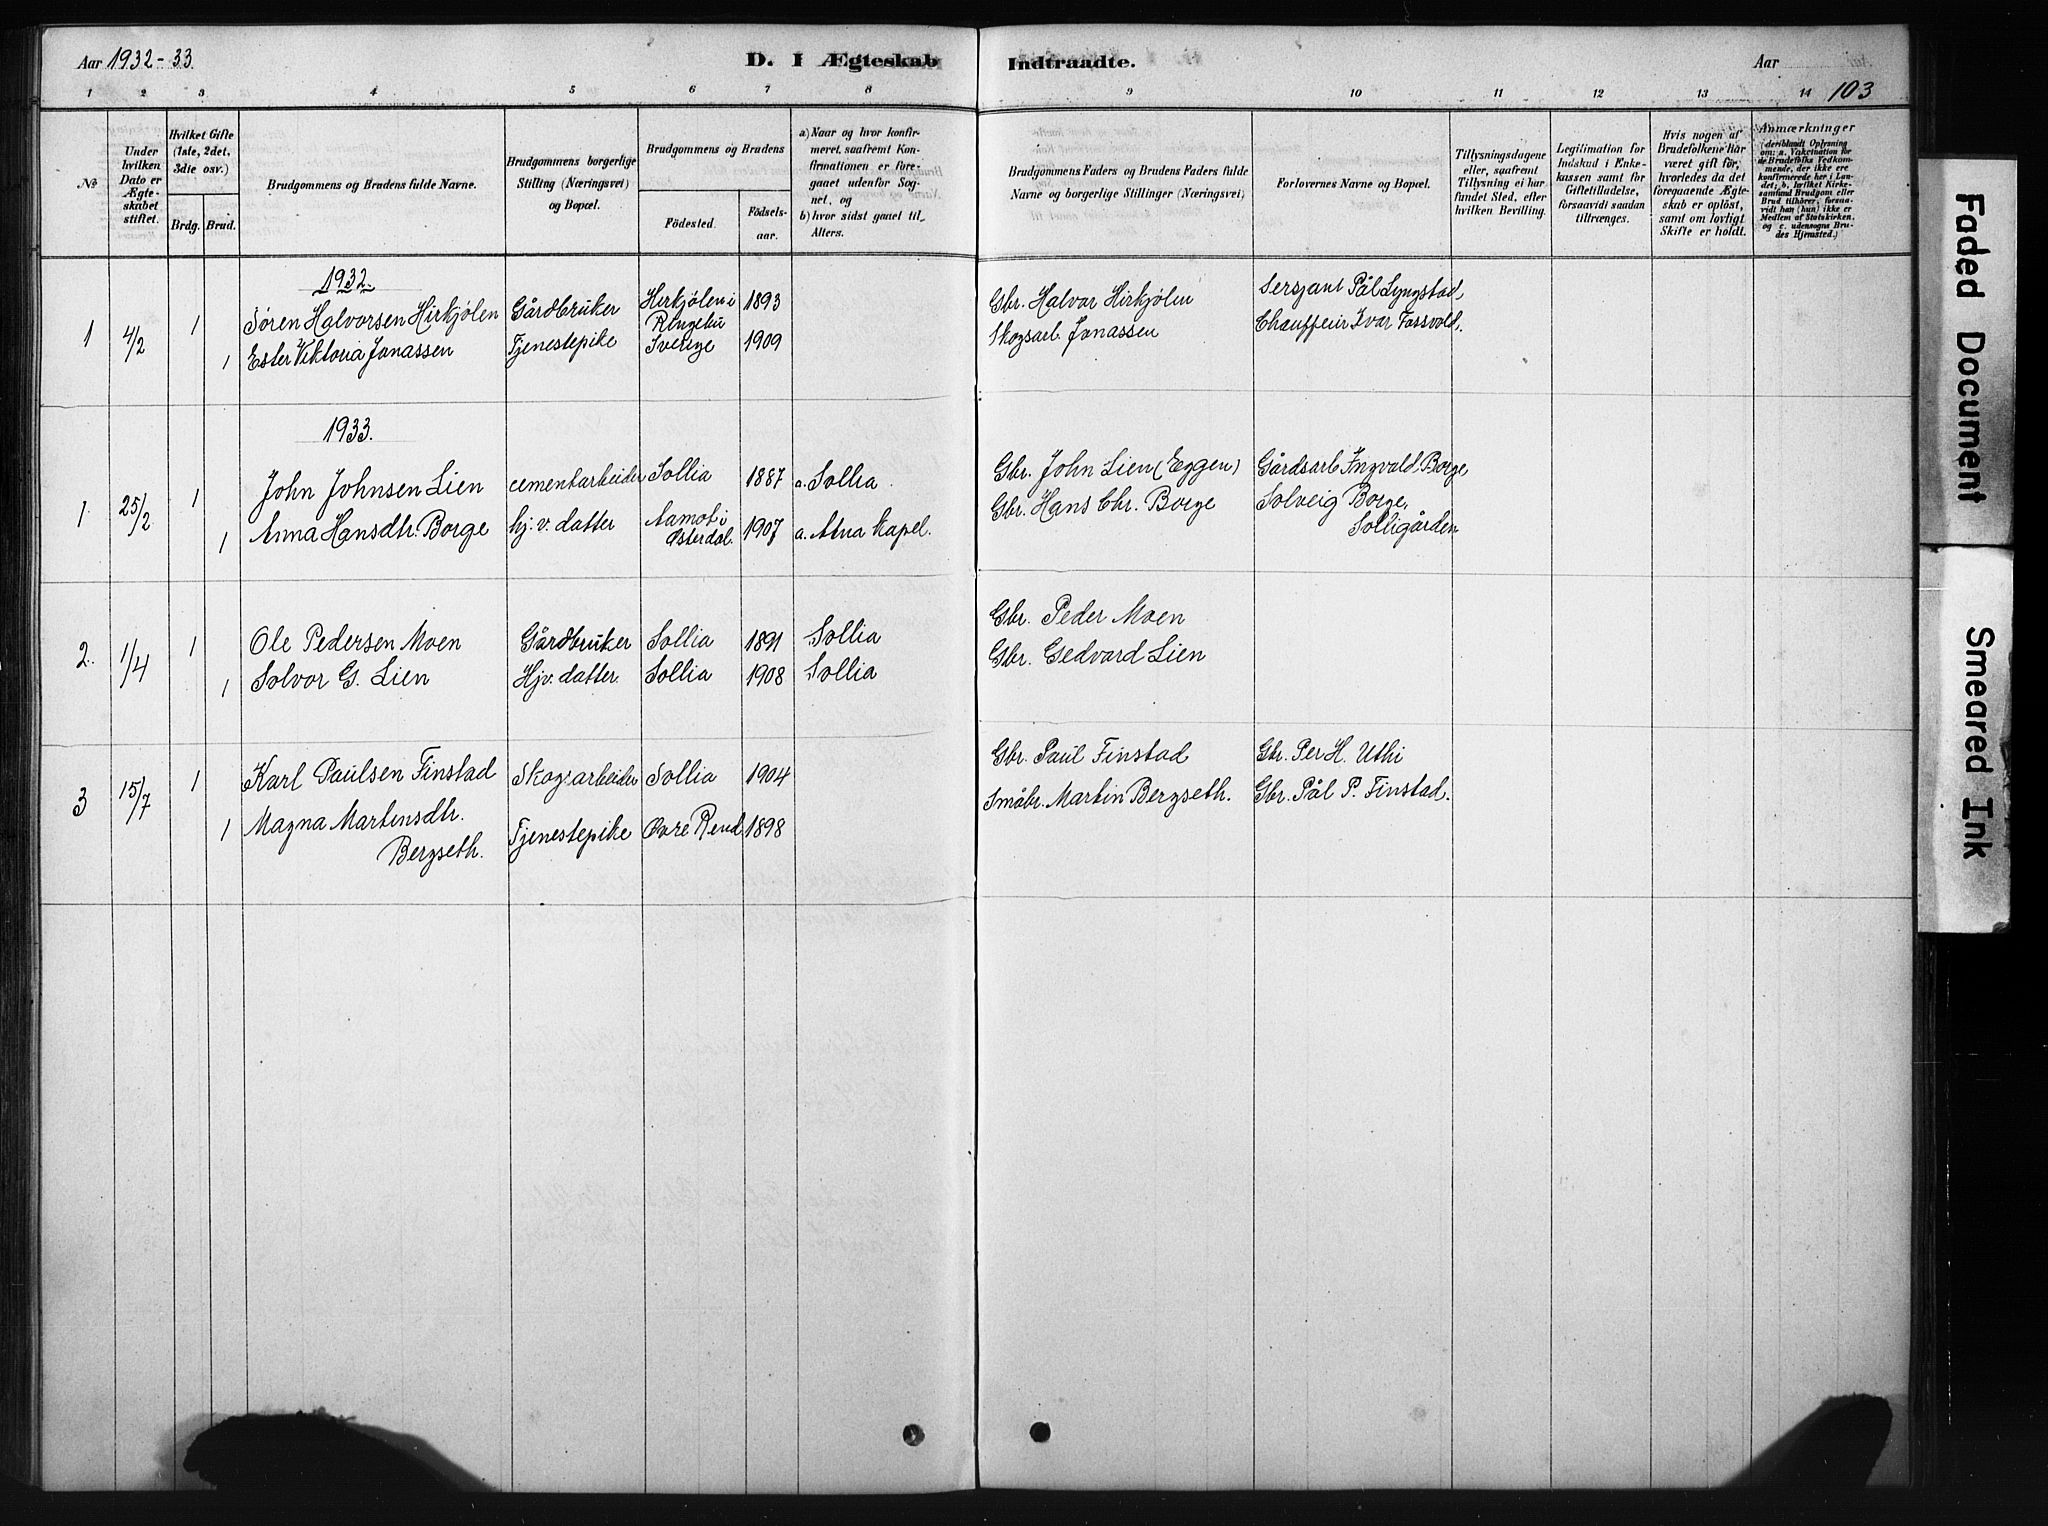 Aar 1932-33
D. I Ægteskab
Indtraadte.
Aar
103
1 2 3 4 5 6 7 8 9 10 11 12 13 14
№
Under hvilken Dato er Ægteskabet stiftet.
Hvilket Gifte (1ste, 2det, 3die osv.)
Brdg. Brud.
Brudgommens og Brudens fulde Navne.
Brudgommens borgerlige Stilling (Næringsvei) og Bopæl.
Brudgommens og Brudens
Födested.
Födselsaar.
a) Naar og hvor konfirmeret, saafremt Konfirmationen er foregaaet udenfor Sognet, og
b) hvor sidst gaaet til Alters.
Brudgommens Faders og Brudens Faders fulde Navne og borgerlige Stillinger (Næringsvei)
Forlovernes Navne og Bopæl.
Tillysningsdagene eller, saafremt Tillysning ei har fundet Sted, efter hvilken Bevilling.
Legitimation for Indskud i Enkekassen samt for Giftetilladelse, forsaavidt saadan tiltrænges.
Hvis nogen af Brudefolkene har været gift før, hvorledes da det foregaaende Ægteskab er oplöst, samt om lovligt Skifte er holdt.
Anmærkninger (deriblandt Oplysning om: a. Vakcination for de Brudefolks Vedkommende, der ikke ere konfirmerede her i Landet; b. hvilket Kirkesamfund Brudgom eller Brud tilhörer, forsaavidt han (hun) ikke er Medlem af Statskirken, og c. udensogns Brudes Hjemsted.)
1932.
1 4/2 1 Søren Halvorsen Hirkjølen Gårdbruker Hirkjølen i Ringebu 1893 Gbr. Halvor Hirkjølen Sersjant Pål Lyngstad,
1 Ester Viktoria Jonassen Tjenestepike Sverige 1909 Skogsarb. Jonassen Chauffeur Ivar Fossvold.
1933.
1. 25/2 1 John Johnsen Lien cementarbeider Sollia 1887 a. Sollia. Gbr. John Lien (Eggen) Gårdsarb. Ingvald Borge,
1 Anna Hansdtr. Borge hj.v. datter Aamot i Østerdal. 1907 a. Atna kapel. Gbr. Hans Chr. Borge Solveig Borge,
Solligården
2. 1/4 1 Ole Pedersen Moen Gårdbruker Sollia 1891 Sollia Gbr. Peder Moen
1 Solvor G. Lien Hjv. datter. Sollia 1908 Sollia Gbr. Gedvard Lien
3 15/7 1 Karl Paulsen Finstad Skogsarbeider Sollia 1904 Gbr. Paul Finstad Gbr. Per H. Uthi
1 Magna Martinsdtr. Bergseth. Tjenestepike Øvre Rend. 1898 Småbr. Martin Bergseth. Gbr. Pål P. Finstad.
Faded Document
Smeared Ink